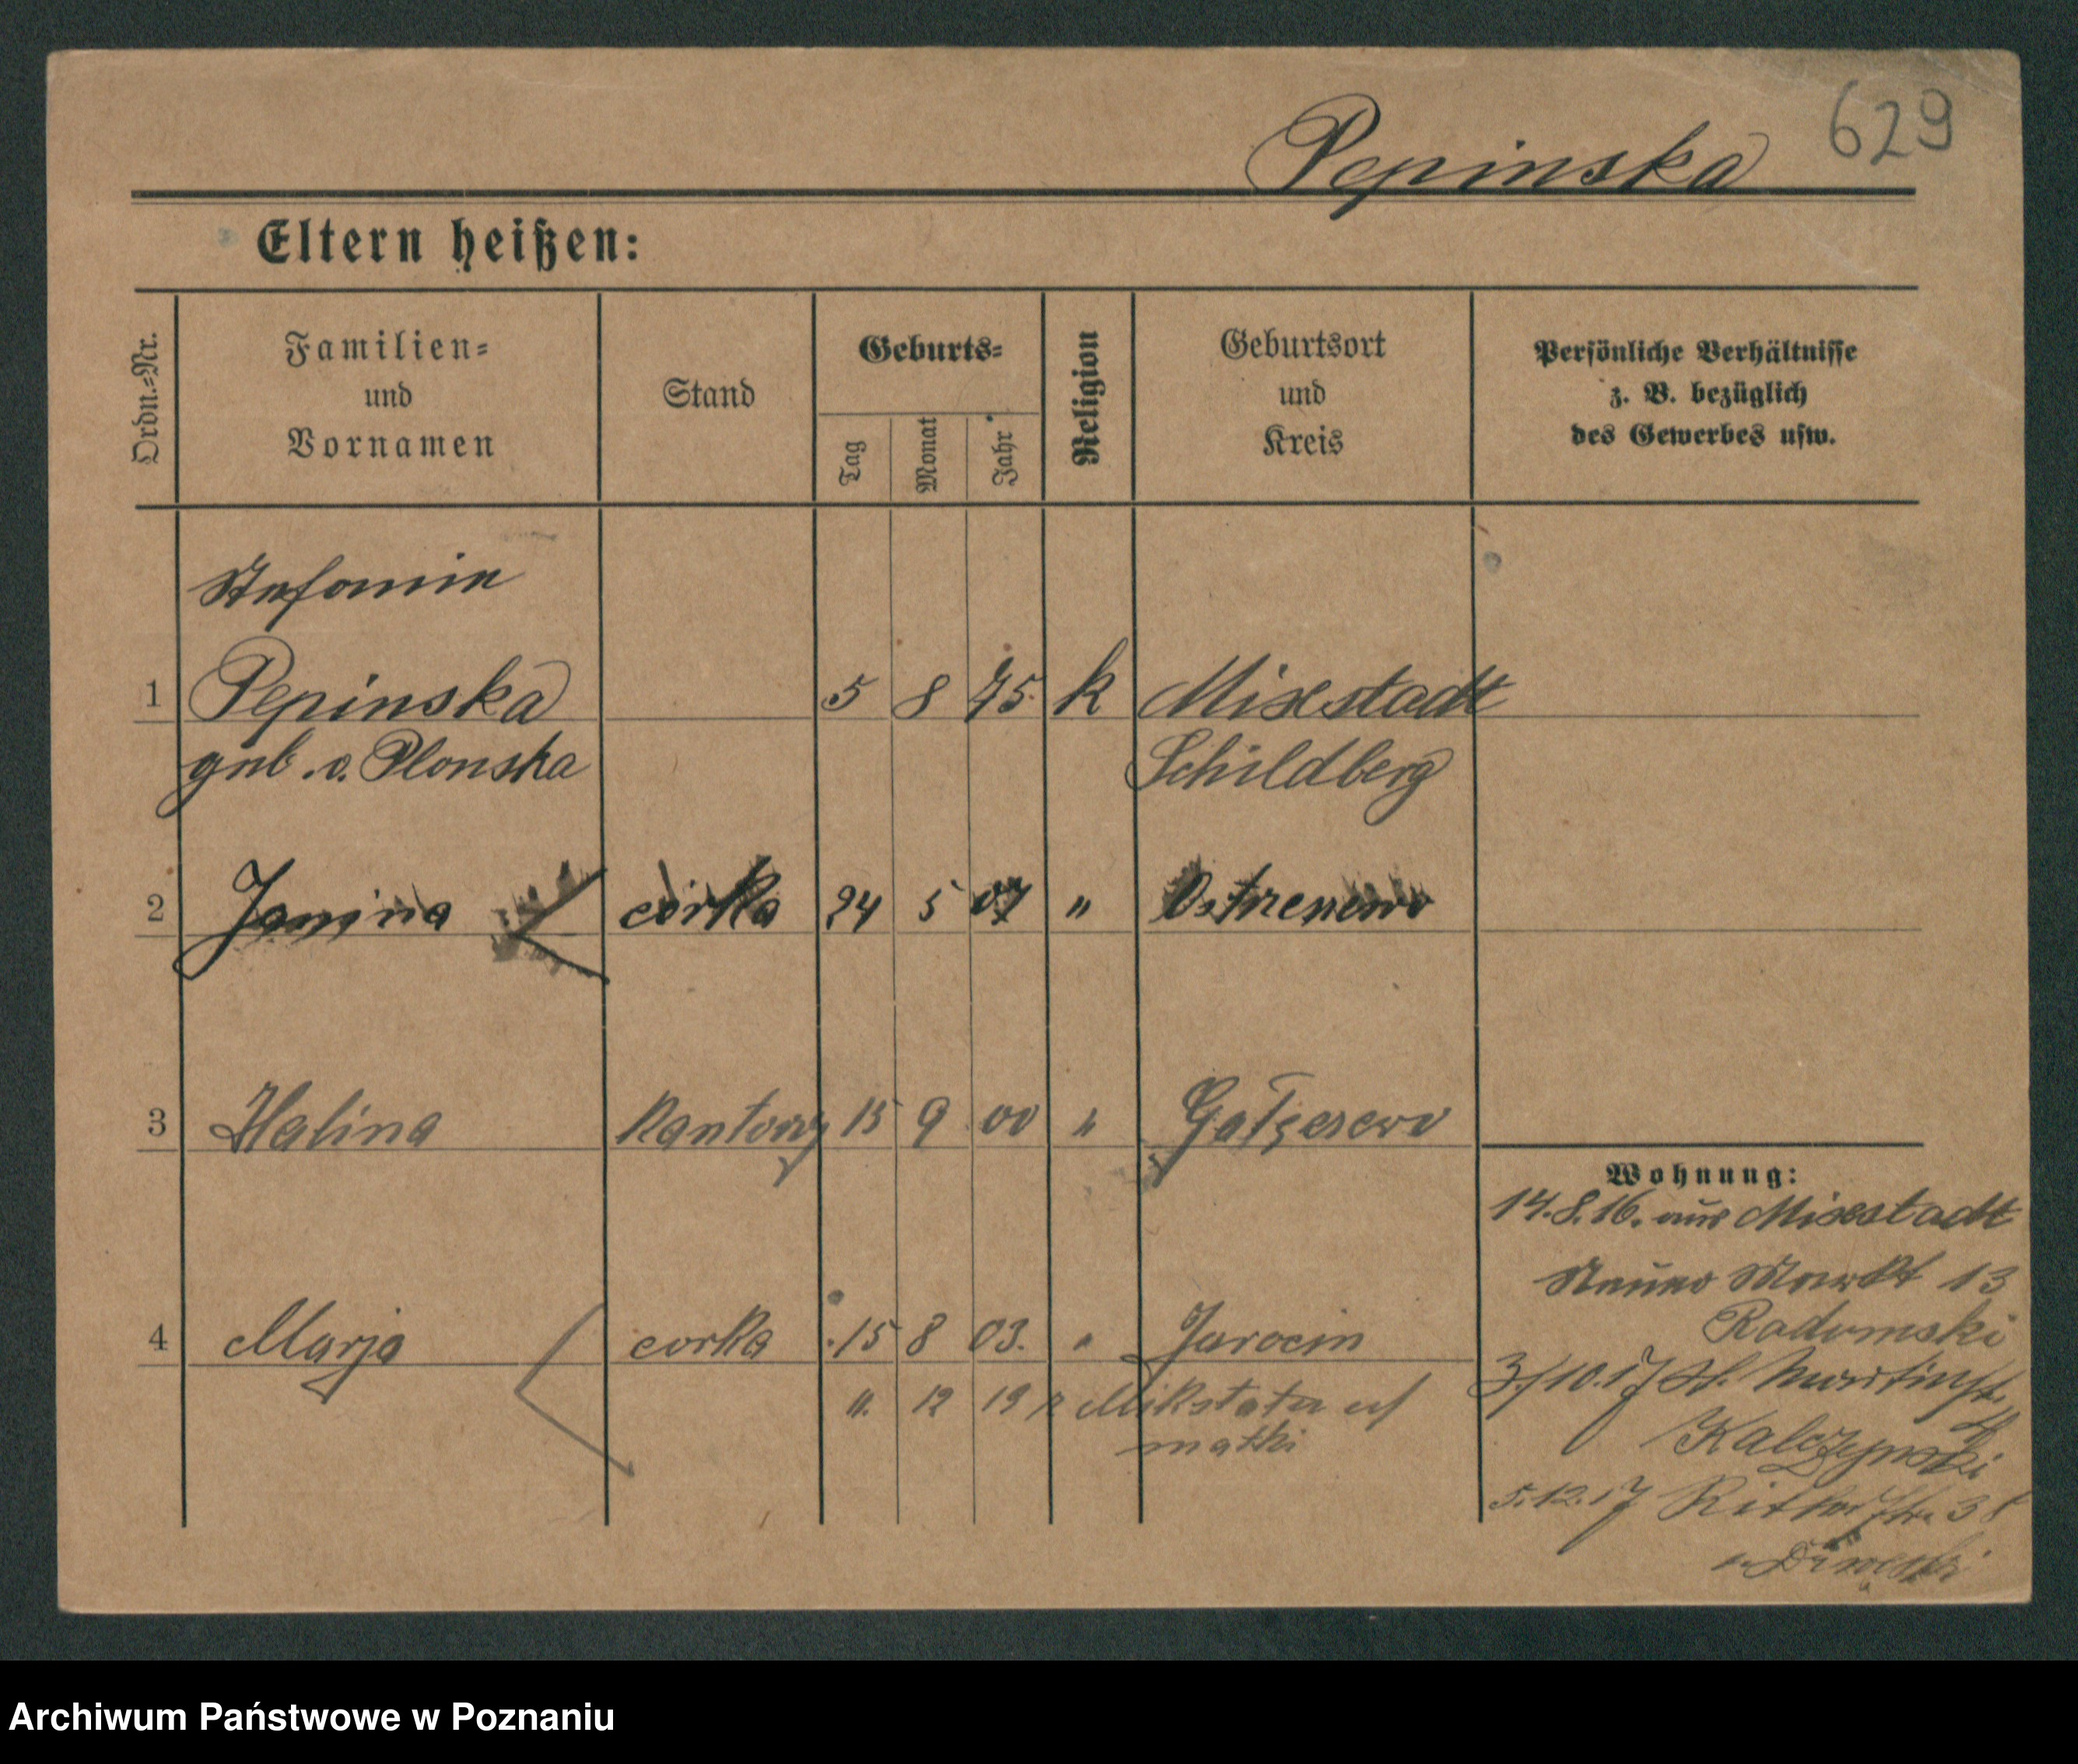 629
Pepinska
Eltern heißen:
Ordn.-Nr.
Familien-
und
Vornamen
Stand
Geburts-
Tag
Monat
Jahr
Religion
Geburtsort
und
Kreis
Persönliche Verhältnisse
z. B. bezüglich
des Gewerbes usw.
Stefanie
1 Pepinska 5 8 75. k Mixstadt
geb. v. Plonska Schildberg
2 Janina córka 24 5 07 "
3 Halina 15 9 00 "
Wohnung:
14.8.16. aus Mixstadt
Neuer Markt 13
Radomski
4 Marja corka 15 8 03. " Jarocin
3/10.17 St. Martinstr.
11. 12 19 Mikstata
matki
5.12.17 Ritterstr. 38
Archiwum Państwowe w Poznaniu